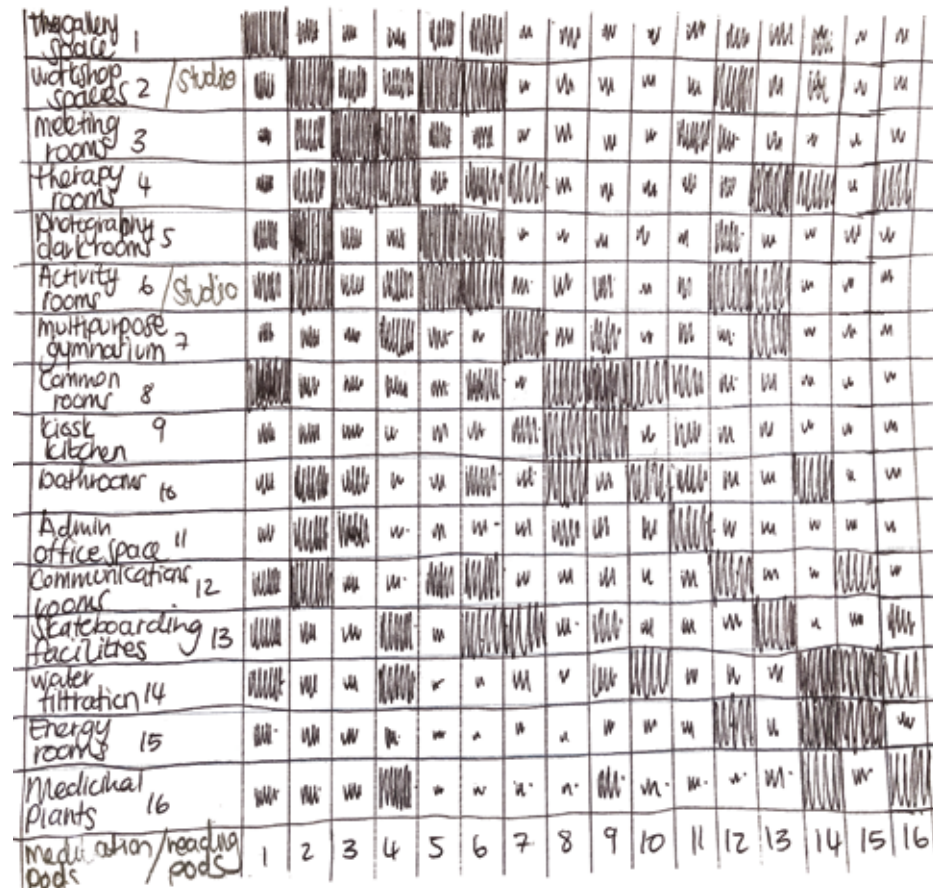 thegallery
space 1
workshop
spaces 2 /Studio
meeting
rooms 3
therapy
rooms 4
photography
darkrooms 5
Activity
rooms 6 /Studio
multipurpose
gymnasium 7
Common
rooms 8
kiosk 9
kitchen
bathrooms 10
Admin
office space 11
Communications
rooms 12
Skateboarding
facilitres 13
water
filtration 14
Energy
rooms 15
Medicinal
Plants 16
/reading
pods 1 2 3 4 5 6 7 8 9 10 11 12 13 14 15 16
pods